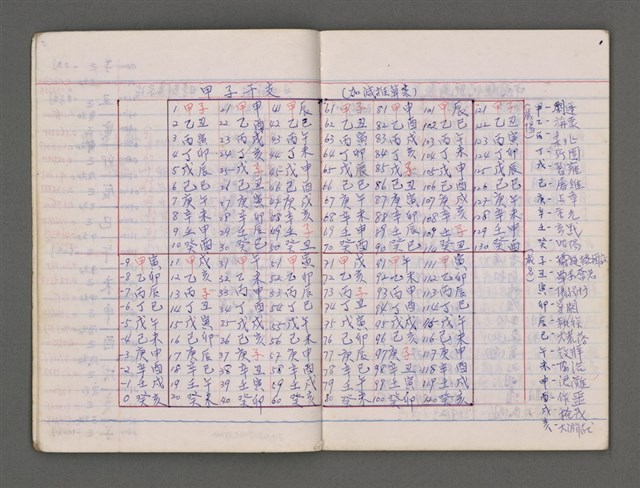 甲子干支 (加減推算表)
1 甲子 21 甲申 41 甲辰 61 甲子 81 甲申 101 甲辰 121 甲子
2 乙丑 22 乙酉 42 乙巳 62 乙丑 82 乙酉 102 乙巳 122 乙丑
3 丙寅 23 丙戌 43 丙午 63 丙寅 83 丙戌 103 丙午 123 丙寅
4 丁卯 24 丁亥 44 丁未 64 丁卯 84 丁亥 104 丁未 124 丁卯
5 戊辰 25 戊子 45 戊申 65 戊辰 85 戊子 105 戊申 125 戊辰
6 己巳 26 己丑 46 己酉 66 己巳 86 己丑 106 己酉 126 己巳
7 庚午 27 庚寅 47 庚戌 67 庚午 87 庚寅 107 庚戌 127 庚午
8 辛未 28 辛卯 48 辛亥 68 辛未 88 辛卯 108 辛亥 128 辛未
9 壬申 29 壬辰 49 壬子 69 壬申 89 壬辰 109 壬子 129 壬申
10 癸酉 30 癸巳 50 癸丑 70 癸酉 90 癸巳 110 癸丑 130 癸酉
-9 甲寅 11 甲戌 31 甲午 51 甲寅 71 甲戌 91 甲午 111 甲寅
-8 乙卯 12 乙亥 32 乙未 52 乙卯 72 乙亥 92 乙未 112 乙卯
-7 丙辰 13 丙子 33 丙申 53 丙辰 73 丙子 93 丙申 113 丙辰
-6 丁巳 14 丁丑 34 丁酉 54 丁巳 74 丁丑 94 丁酉 114 丁巳
-5 戊午 15 戊寅 35 戊戌 55 戊午 75 戊寅 95 戊戌 115 戊午
-4 己未 16 己卯 36 己亥 56 己未 76 己卯 96 己亥 116 己未
-3 庚申 17 庚辰 37 庚子 57 庚申 77 庚辰 97 庚子 117 庚申
-2 辛酉 18 辛巳 38 辛丑 58 辛酉 78 辛巳 98 辛丑 118 辛酉
-1 壬戌 19 壬午 39 壬寅 59 壬戌 79 壬午 99 壬寅 119 壬戌
0 癸亥 20 癸未 40 癸卯 60 癸亥 80 癸未 100 癸卯 120 癸亥
甲-閼逢
乙-
丙-
丁-
戊-
己-屠維
庚-上章
辛-
壬-玄黓
癸-
子-
丑-
寅-
卯-單閼
辰-執徐
巳-大荒落
午-敦牂
未-
申-
酉-作噩
戌-
亥-大淵獻